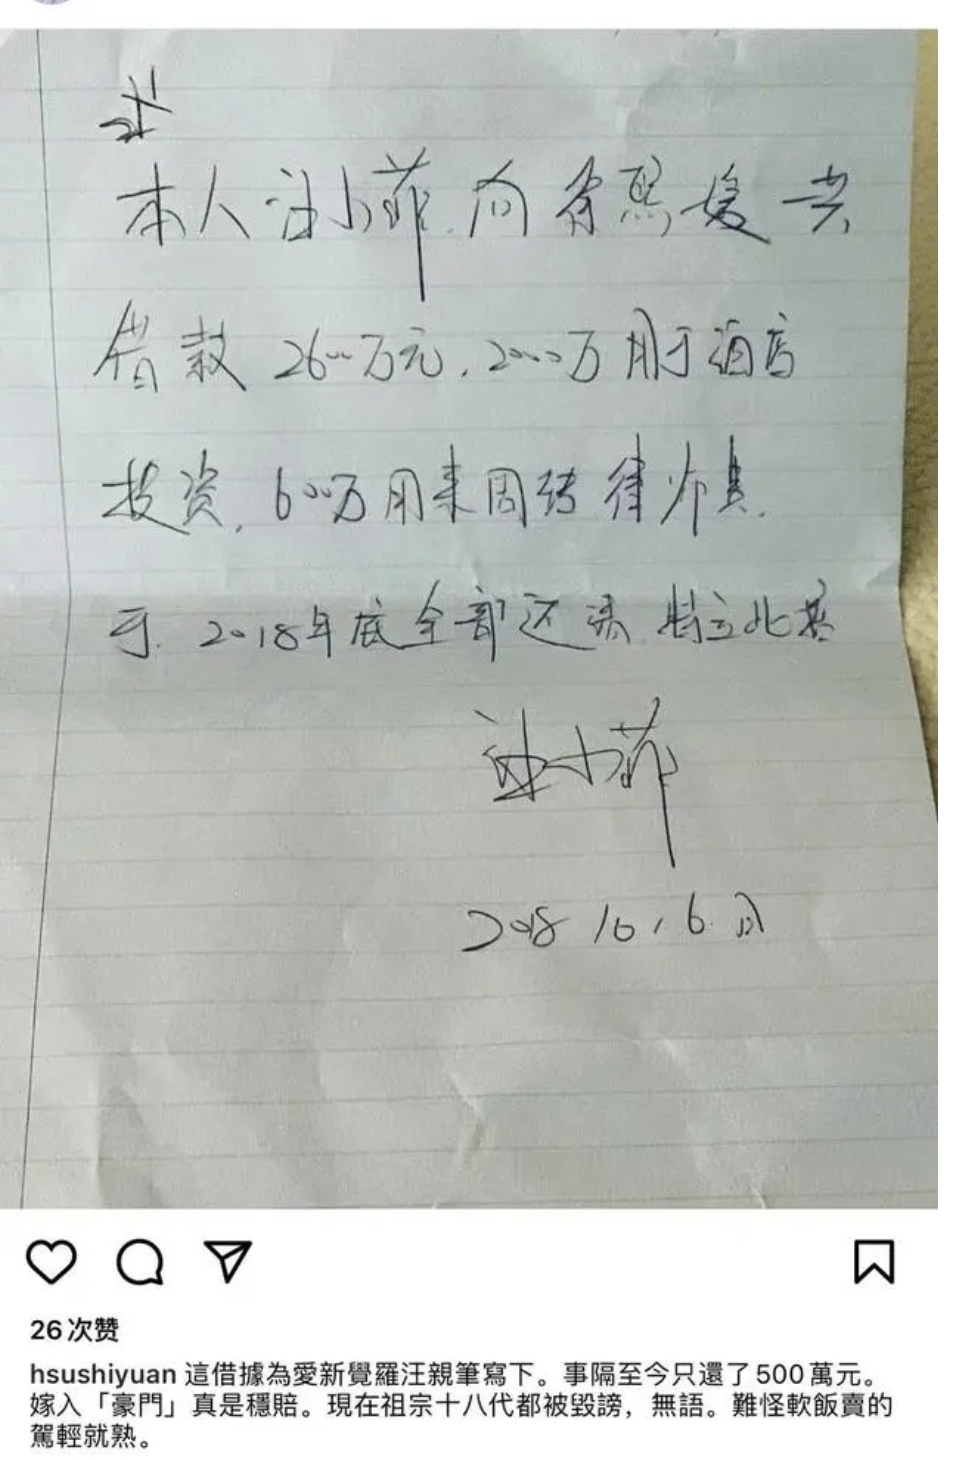 本人汪小菲向徐熙媛共
借款2600万元,2000万用于酒店
投资,600万用来周转律师费.
于.2018年底全部还清.特立此据
汪小菲
2018 10,6.
26次赞
hsushiyuan 這借據為愛新覺羅汪親筆寫下。事隔至今只還了500萬元。
嫁入「豪門」真是穩賠。現在祖宗十八代都被毀謗，無語。難怪軟飯賣的
駕輕就熟。